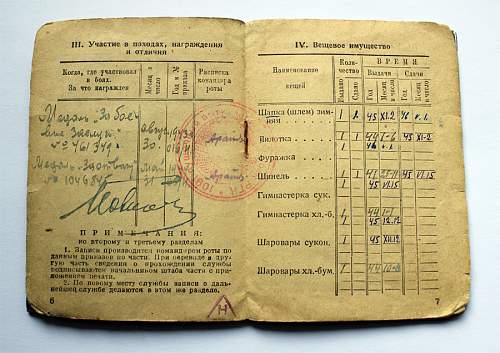 III. Участие в походах, награждения
и отличия
Когда, где участвовал
в боях.
За что награжден
Месяц
и число
Год и №
приказа
Расписка
командира
роты
Медаль „За бое-
вые заслуги“
№ 461349
Медаль
№ 1046845
Май
31
ПРИМЕЧАНИЯ
ко второму и третьему разделам
1. Записи производятся командиром роты по
данным приказов по части. При переводе в дру-
гую часть сведения о прохождении службы
подписываются начальником штаба части с при-
ложением печати.
2. По новому месту службы записи о даль-
нейшей службе делаются в этом же разделе.
6
Н
IV. Вещевое имущество
Наименование
вещей
Коли-
чество
Выдано
Сдано
ВРЕМЯ
Выдачи
Сдачи
Год
Месяц
и число
Год
Месяц
и число
Шапка (шлем) зим-
няя 1 1 45 XI.2
Пилотка 1 1 44 I-6 45 XI-2
Фуражка
Шинель 1 1 45 VI.15
1 45 VI.15
Гимнастерка сук.
Гимнастерка хл.-б. 1 44
1 45 12.12
Шаровары сукон. 1 45 XII.12
Шаровары хл.-бум. 1 44
7